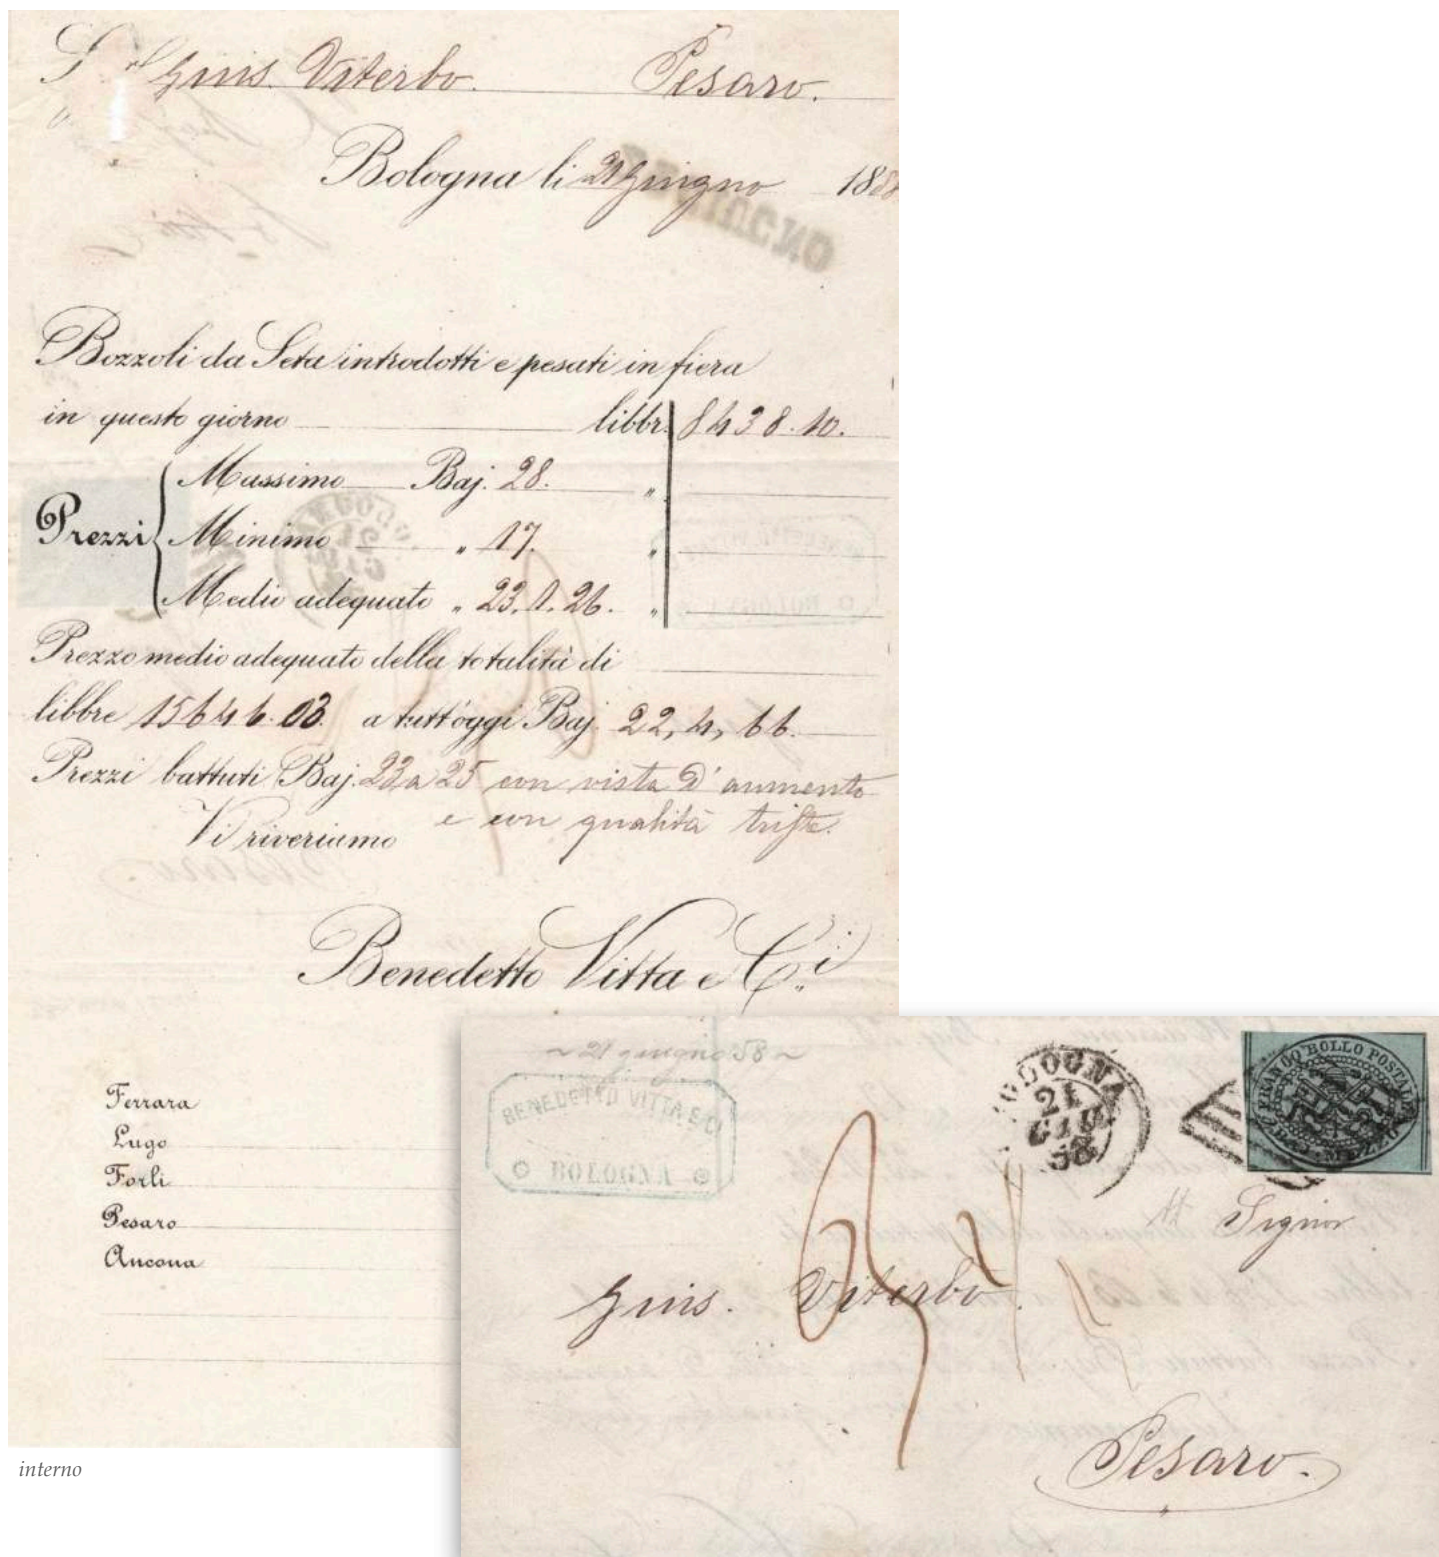 Giuis. Viterbo. Pesaro.
Bologna li 21 Giugno 1858
Bozzoli da Seta introdotti e pesati in fiera
in questo giorno libbr. 8438.10.
Prezzi
Massimo Baj. 28. "
Minimo " 17. "
Medio adeguato " 23.1.26. "
Prezzo medio adeguato della totalità di
libbre 15646.03. a tutt'oggi Baj. 22,4,66.
Prezzi battuti Baj. 23 a 25 con vista d'aumento
e con qualità triste.
Vi riveriamo
Benedetto Vitta e C.i
Ferrara
Lugo
Forlì
Pesaro
Ancona
interno
~ 21 giugno 58 ~
BENEDETTO VITTA E CI
BOLOGNA
BOLOGNA
21
GIU
58
FRANCO BOLLO POSTALE
MEZZO
Signor
Giuis. Viterbo.
Pesaro.